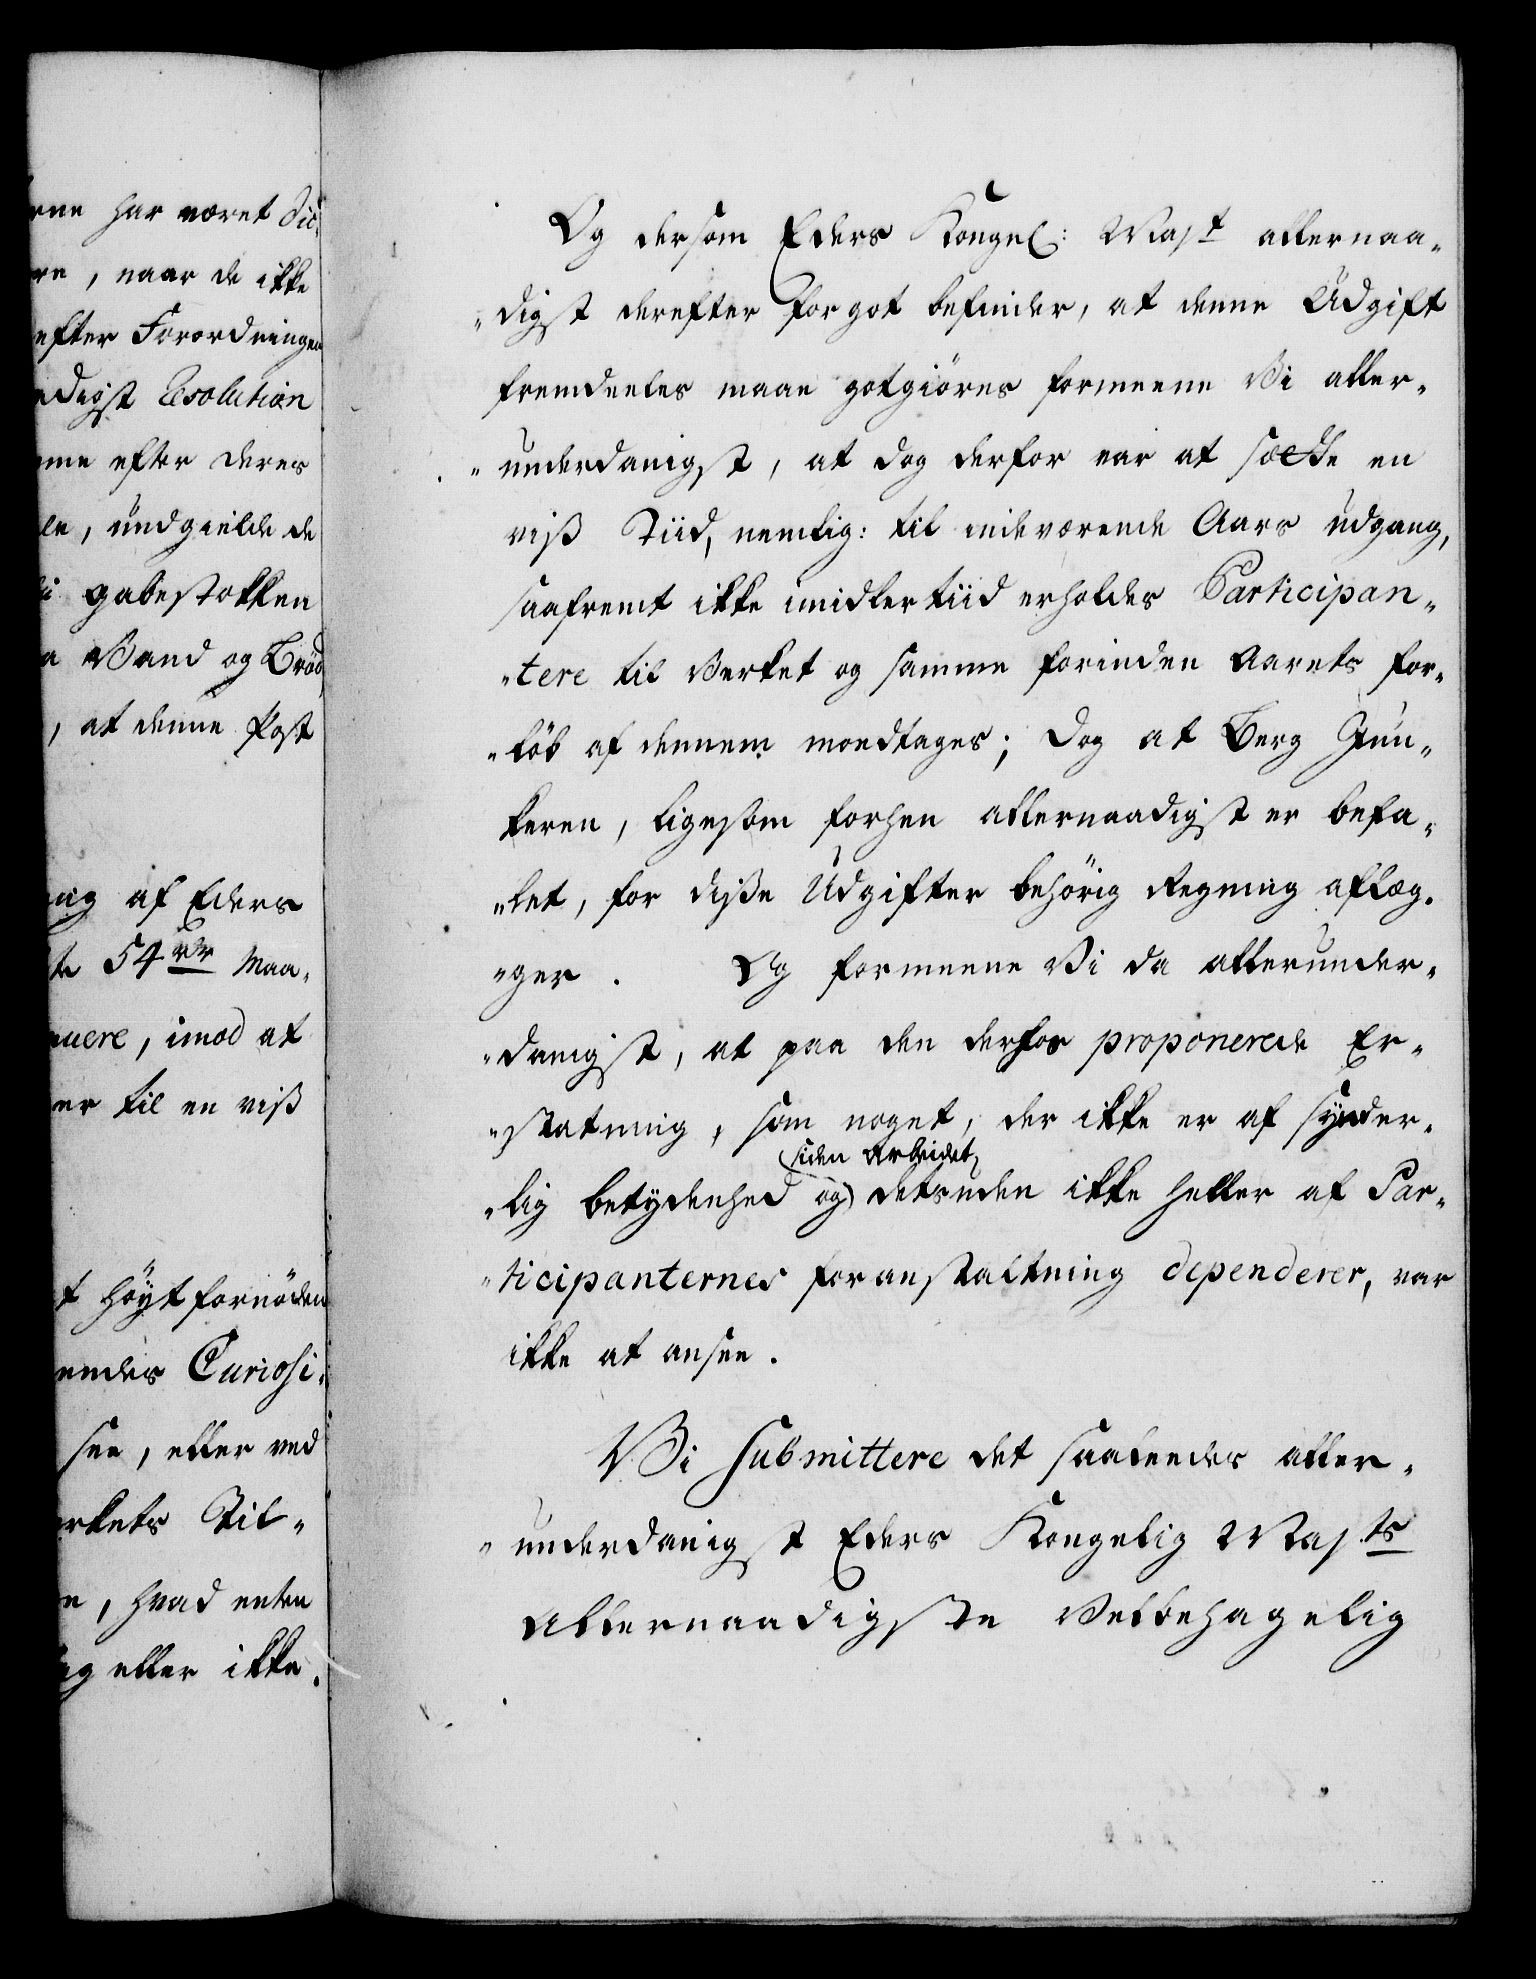 rne har været Sic-
re, naar de ikke
efter Forordningen
digst Resolution
me efter deres
le, undgielde de
i gabestokken
a Vand og Brød,
, at denne Post
ng af Eders
te 54 rdr Maa-
nuere, imod at
er til en viß
t høyt fornøden
endes Curiosi-
see, eller ved
rkets Til-
n, hvad enten
ig eller ikke.
Og dersom Eders Kongel: Majt allernaa-
digst derefter for got befinder, at denne Udgift
fremdeeles maae gotgiöres formeene Vi aller-
underdanigst, at dog derfor var at sætte en
viß Tiid, nemlig: til indeværende Aars udgang,
saafremt ikke imidlertiid erholdes Participan-
tere til Verket og samme forinden Aarets for-
löb af dennem modtages; dog at Berg Jun-
keren, ligesom forhen allernaadigst er befa-
let, for diße Udgifter behörig Regning aflæg-
ger. Og formeene Vi da allerunder-
danigst, at paa den derfor proponerede Er-
statning, som noget, der ikke er af synder-
(siden Arbeidet
lig betydenhed og) desuden ikke heller af Par-
ticipanternes foranstaltning dependerer, var
ikke at ansee.
Vi submittere det saaledes aller-
underdanigst Eders Kongelig Majts
Allernaadigste Velbehagelig